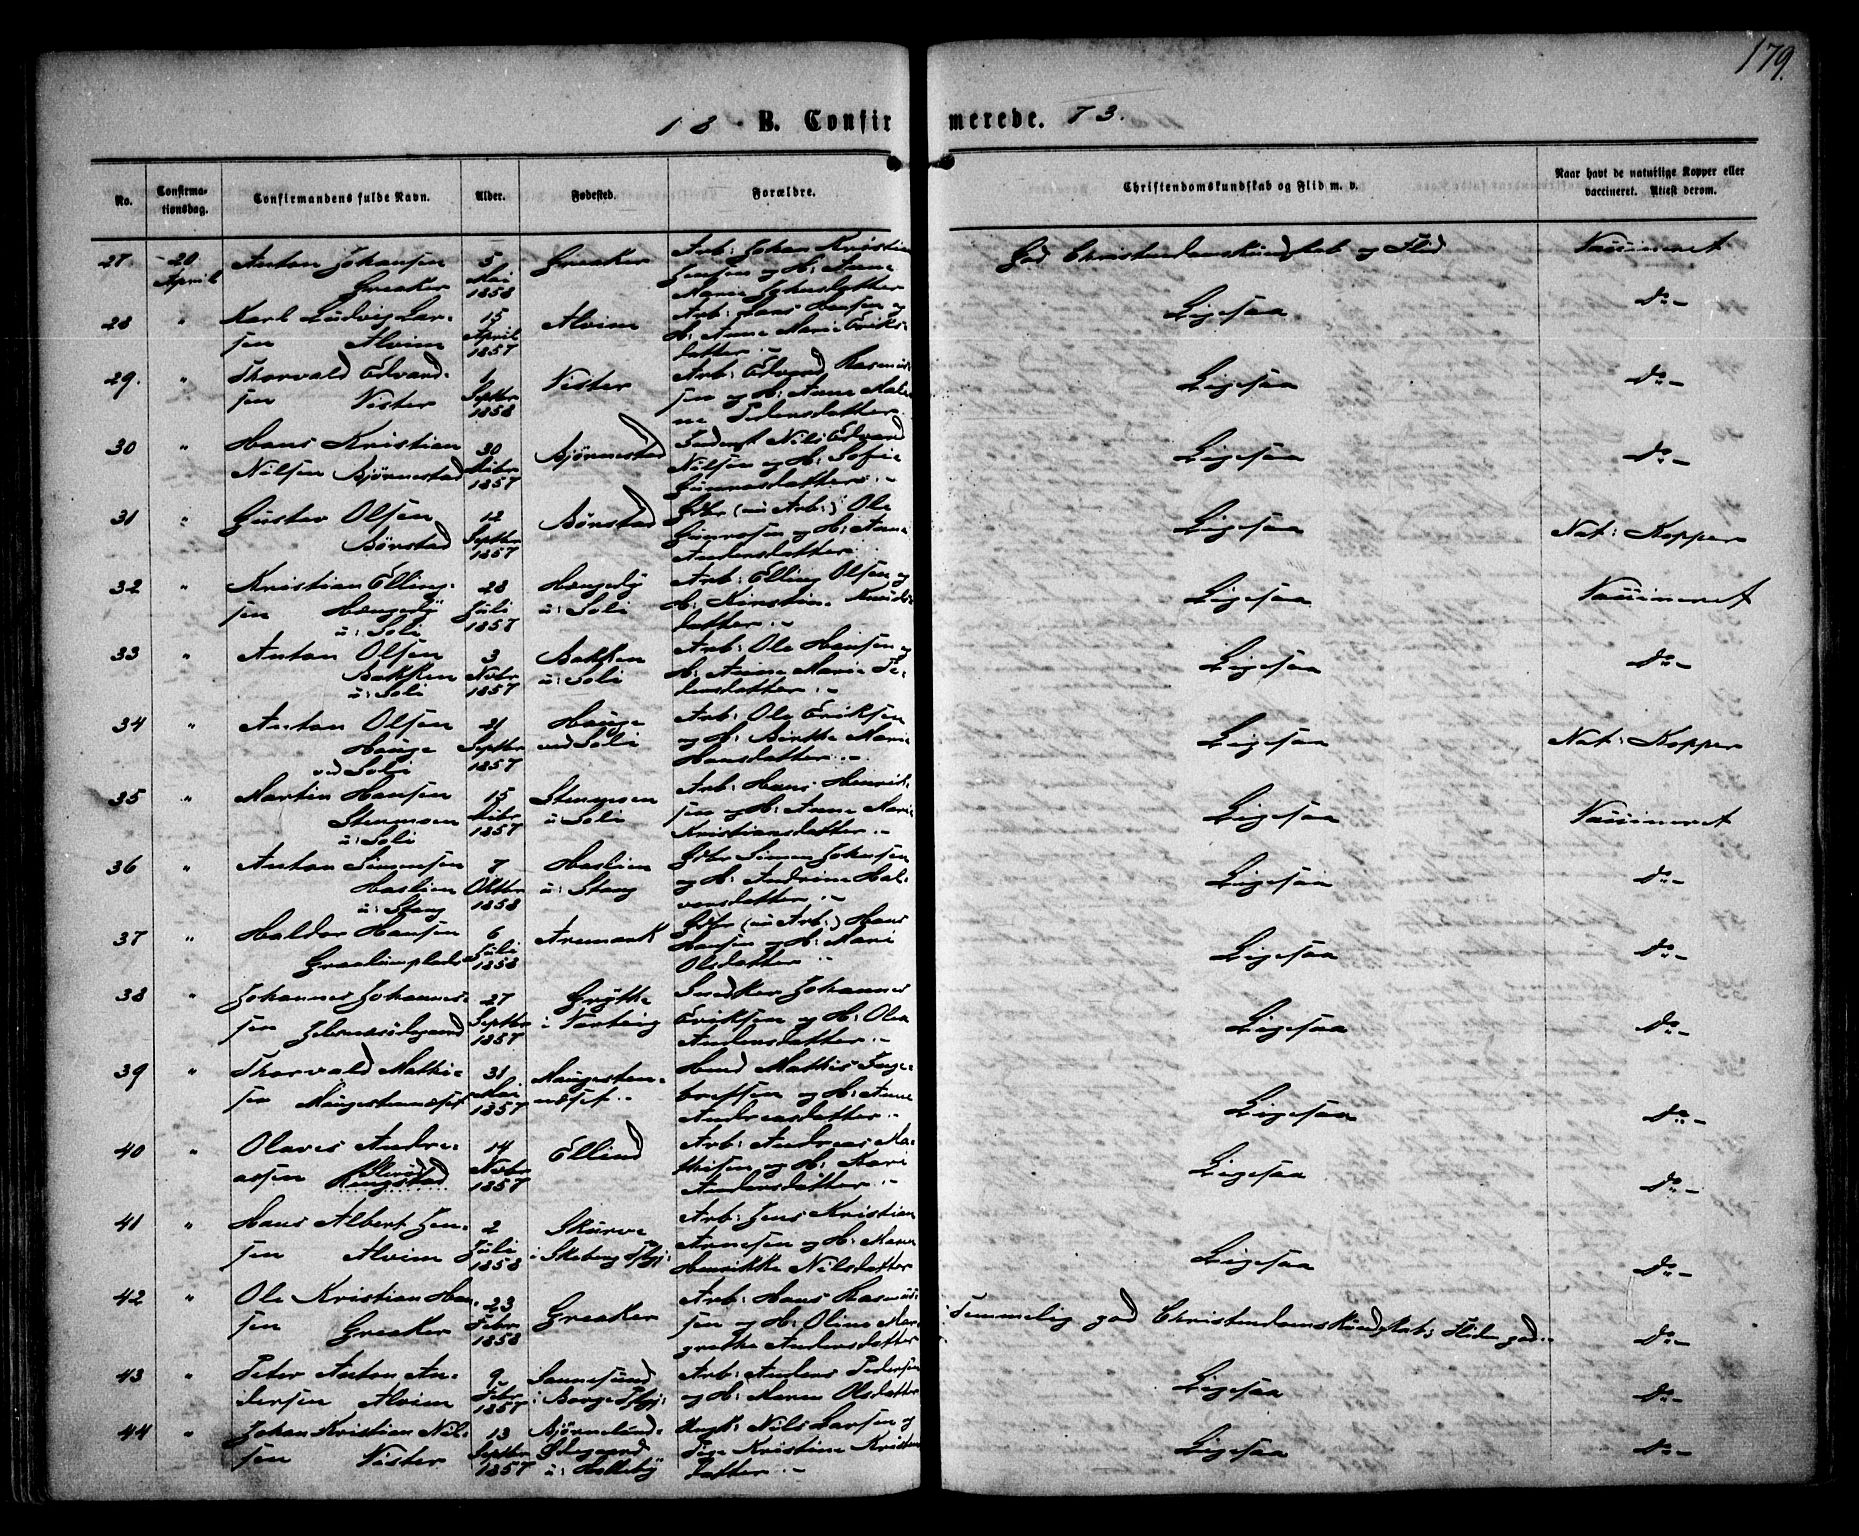 179.
18 B. Confirmerede. 73.
No. Confirmationsdag. Confirmandens fulde Navn. Alder. Fødested. Forældre. Christendomskundskab og Flid m. v. Naar havt de naturlige Kopper eller vaccineret. Attest derom.
27. 20 April Anton Johansen Greaker 5 Mai 1858 Greaker Arb: Johan Kristian Jensen og H: Anne Marie Johnsdatter God Christendomskundskab og Flid Vaccineret
28 " Karl Ludvig Larsen Alvim 15 April 1857 Alvim Arb: Lars Hansen og H: Anne Marie Eriksdatter .- Ligesaa Do -
29. " Thorvald Edvardsen Vister 1 Septbr 1858 Vister Arb: Edvard Rasmussen og H: Anne Malene Pedersdatter .- Ligesaa Do -
30 " Hans Kristian Nilsen Bjørnestad 30 1857 Bjørnestad Inderst Nils Edvard Nilsen og H: Sofie Gunersdatter .- Ligesaa Do -
31 " Gustav Olsen Børstad 12 Septbr 1857 Børstad Gbr (nu Arb:) Ole og H: Anne Andersdatter Ligesaa Nat: Kopper
32 " Kristian Ellingsen Hængeby u: Soli 28 Juli 1857 Hængeby u: Soli Arb: Elling Olsen og H: Kirstine Knudsdatter .- Ligesaa Vaccineret
33 " Anton Olsen Bakken u: Soli 3 Novbr 1857 Bakken u: Soli Arb: Ole Hansen og H: Anne Marie Pedersdatter .- Ligesaa Do -
34 " Anton Olsen Hauge ved Soli 21 Septbr 1857 Hauge ved Soli Arb: Ole Eriksen og H: Birthe Marie Hansdatter .- Ligesaa Nat: Kopper
35 " Martin Hansen Stenmoen u: Soli 15 1857 Stenmoen u: Soli Arb: Hans Henriksen og H: Anne Marie Kristiansdatter .- Ligesaa Vaccineret
36 " Anton Simensen Haslien u: Stang 7 Oktbr 1858 Haslien u: Stang Gbr Simen Johnsen og H: Andrine Halvorsdatter .- Ligesaa Do -
37 " Haldor Hansen Graalumplads 6 Juli 1858 Aremark Gbr (nu Arb:) Hans Hansen og H: Mari Olsdatter .- Ligesaa Do -
38 " Johannes Johannessen 27 Septbr 1857 Grytte i Varteig Snedker Johannes Eriksen og H: Olea Andersdatter .- Ligesaa Do -
39 " Thorvald Mathisen 31 Mai 1857 Mathis og H: Anne Andreasdatter .- Ligesaa Do -
40 " Olaves Andreassen Ringstad 14 Novbr 1857 Ellind Arb: Andreas Mathisen og H: Kari Andersdatter .- Ligesaa Do -
41 " Hans Albert Jensen Alvim 2 Juli 1858 Skarve i Skeberg Arb: Jens Kristian Arnesen og H: Maren Henrikke Nilsdatter Ligesaa Do -
42 " Ole Kristian Hansen Greaker 23 Febr 1858 Greaker Arb: Hans Rasmussen og H: Oline Margrethe Andersdatter Temmelig god Christendomskundskab; Fliden god .- Do -
43 " Peter Anton Andersen Alvim 9 Febr 1857 Sannesund i Borge Arb: Anders Pedersen og H: Karen Olsdatter Ligesaa Do -
44 " Johan Kristian Nilsen Vister 13 Septbr 1857 Bjørnelund Ødegaard u: Holleby Ungk: Nils Larsen og Pige Kristine Kristensdatter .- Ligesaa Do -